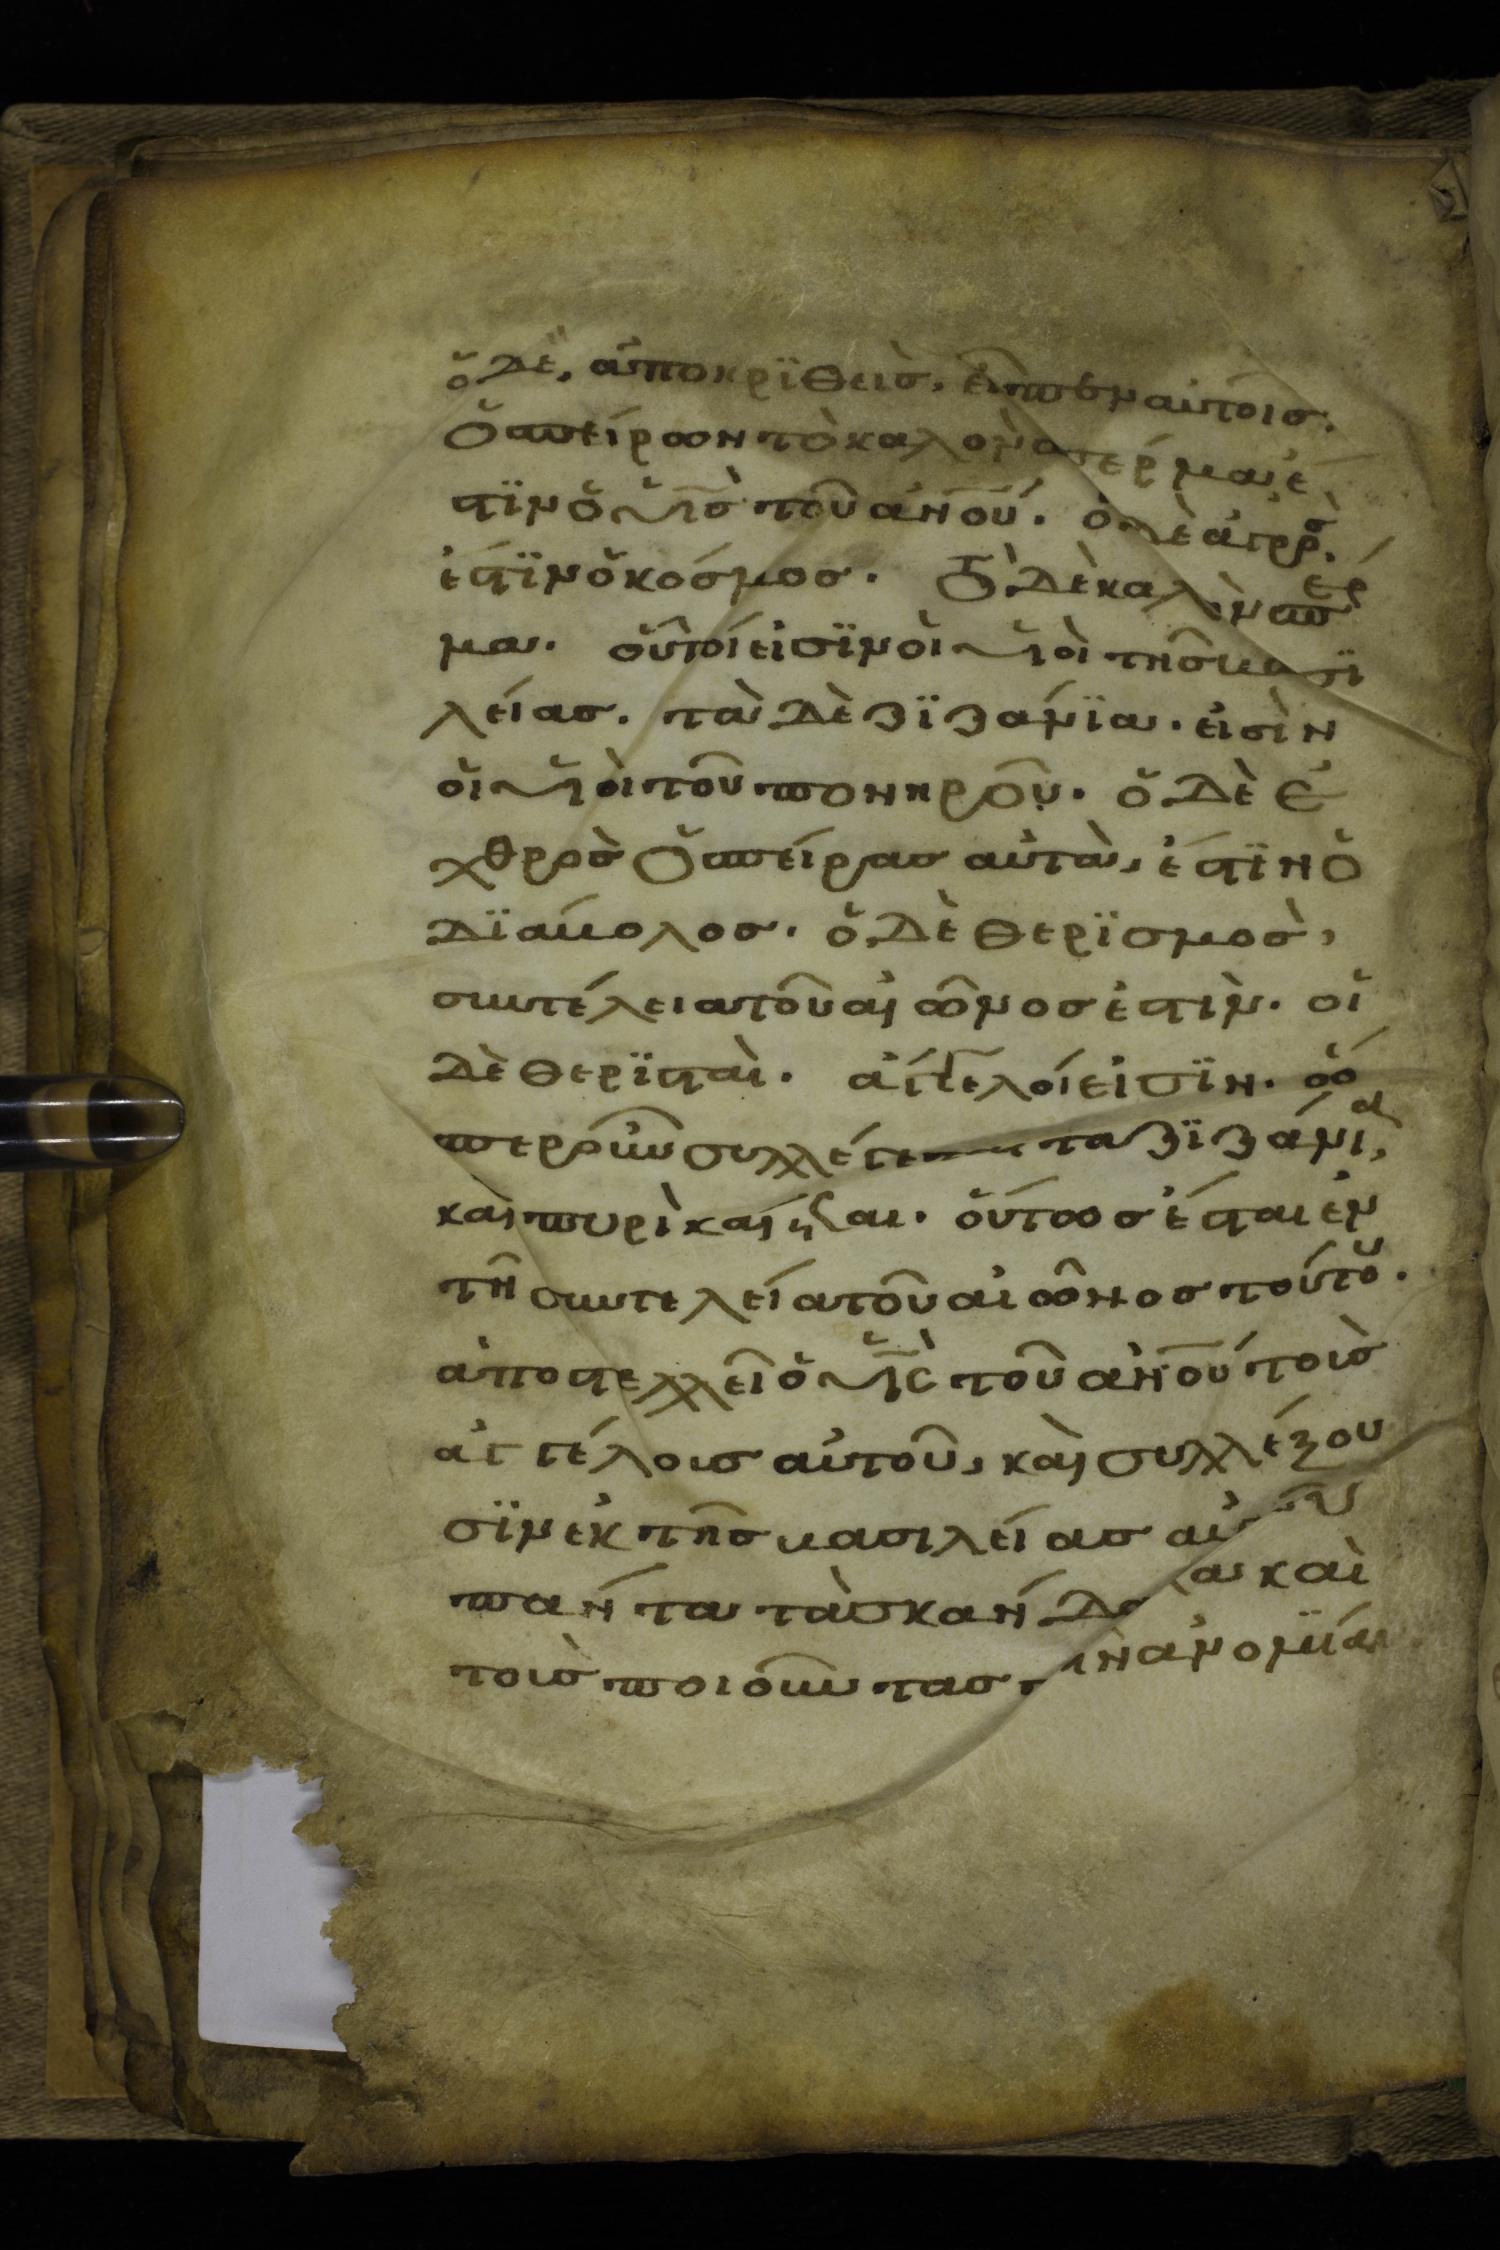 ὁ δὲ, ἀποκρϊθεὶσ, εἶπεν αὐτοῖσ.
Ὁ σπείρων τὸ καλὸν σπέρμα ἐ
στϊν ὁ υἱ̅σ̅ τοῦ α̅ν̅ου̅. ὁ δὲ ἀγρὸσ.
ἐστϊν ὁ κόσμοσ. Τὸ δὲ καλὸν σπέρ
μα. οὗτοί εἰσϊν οἱ υἱοὶ τῆσ βασϊ
λείασ. τὰ δὲ ζϊζάνϊα. εἰσὶν
οἱ υἱοὶ τοῦ πονηροῦ. ὁ δὲ ἐ
χθρὸσ ὁ σπείρασ αὐτὰ, ἐστϊν ὁ
δϊάβολοσ. ὁ δὲ θερϊσμοσ,
συντέλεια τοῦ αἰῶνοσ ἐστιν. οἱ
δὲ θερϊσταὶ. ἄγγελοί εἰσϊν. ὥσ
περ οὖν συλλέγεται τα ζϊζάνια,
καὶ πυρὶ καίεται. οὕτωσ ἔσται ἐν
τῆ συντελεία τοῦ αἰῶνοσ τούτου.
ἀποστελλεῖ ὁ υἱ̅σ̅ τοῦ α̅ν̅ου̅ τοὺσ
ἀγγέλουσ αὐτοῦ, καὶ συλλέξου
σϊν ἐκ τῆσ βασιλείασ αὐτοῦ
πάντα τὰ σκάνδαλα καὶ
τοὺσ ποιοῦντασ τὴν ἀνομϊίαν